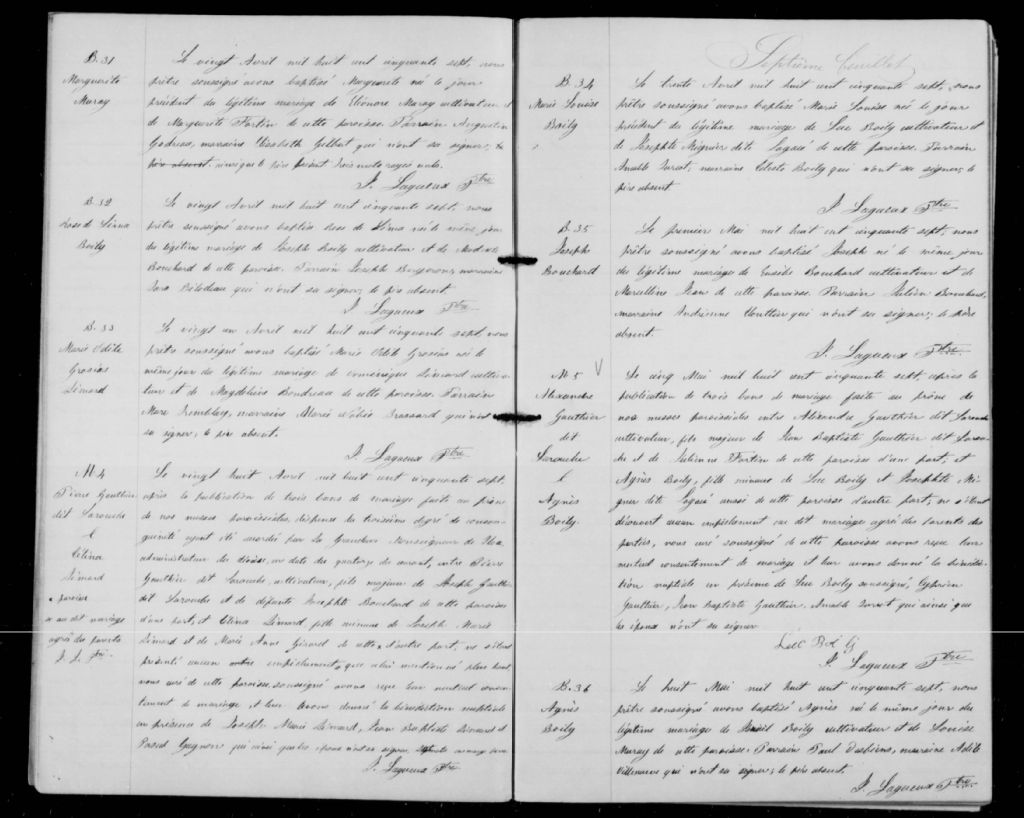 B. 31
Marguerite
Maray
Le vingt Avril mil huit cent cinquante sept, nous
prêtre soussigné avons baptisé Marguerite né le jour
précédent du légitime mariage de Eléonore Maray cultivateur et
de Marguerite Fortin de cette paroisse. Parrain Augustin
Godreau, marraine Elisabeth Gilbert qui n'ont su signer, le
père absent. trois mots rayés nuls.
J. Lagueux Ptre
B. 32
Rose de Lima
Boily
Le vingt Avril mil huit cent cinquante sept, nous
prêtre soussigné avons baptisé Rose de Lima née le même jour
du légitime mariage de Joseph Boily cultivateur et de
Bouchard de cette paroisse. Parrain Joseph Bergeron, marraine
Bilodeau qui n'ont su signer, le père absent.
J. Lagueux Ptre
B. 33
Marie Odile
Grosias
Simard
Le vingt un Avril mil huit cent cinquante sept, nous
prêtre soussigné avons baptisé Marie Odile Grosias né le
même jour du légitime mariage de Simard cultiva-
teur et de Magdeleine Boudreau de cette paroisse. Parrain
Marc Tremblay, marraine Marie Brassard qui n'ont
su signer, le père absent.
J. Lagueux Ptre
M. 4
Pierre Gauthier
dit Larouche
&
Célina
Simard
au dit mariage
agré des parents
J. L. Ptre
Le vingt huit Avril mil huit cent cinquante sept,
après la publication de trois bans de mariage faite au prône
de nos messes paroissiales, dispense du troisième degré de consan-
guinité ayant été accordé par Sa Grandeur Monseigneur de Tloa
administrateur du diocèse, en date du quatorze du courant, entre Pierre
Gauthier dit Larouche, cultivateur, fils majeur de Joseph Gauthier
dit Larouche et de défunte Josephte Bouchard de cette paroisse
d'une part, et Célina Simard fille mineure de Joseph Marie
Simard et de Marie Anne Girard de cette d'autre part, ne s'étant
présenté aucun autre empêchement que celui mentionné plus haut
nous curé de cette paroisse, soussigné avons reçu leur mutuel consen-
tement de mariage, et leur avons donné la bénédiction nuptiale
en présence de Joseph Marie Simard, Jean Baptiste Simard et
Pascal Gagnon qui ainsi que les époux n'ont su signer,
J. Lagueux Ptre
Septième feuillet
B. 34
Marie Louise
Boily
Le trente Avril mil huit cent cinquante sept, nous
prêtre soussigné avons baptisé Marie Louise née le jour
précédent du légitime mariage de Luc Boily cultivateur et
de Josephte Mignier dite Lagacé de cette paroisse. Parrain
Amable marraine Céleste Boily qui n'ont su signer, le
père absent.
J. Lagueux Ptre
B. 35
Joseph
Bouchard
Le premier Mai mil huit cent cinquante sept, nous
prêtre soussigné avons baptisé Joseph né le même jour
du légitime mariage de Eusèbe Bouchard cultivateur et de
Marcelline Jean de cette paroisse. Parrain Julien Bouchard,
marraine Andrienne Cloutier qui n'ont su signer, le père
absent.
J. Lagueux Ptre
M. 5
Alexandre
Gauthier
dit
Larouche
&
Agnès
Boily.
Le cinq Mai mil huit cent cinquante sept, après la
publication de trois bans de mariage faite au prône de
nos messes paroissiales entre Alexandre Gauthier dit Larouche
cultivateur, fils majeur de Jean Baptiste Gauthier dit Larou-
che et de Julienne Fortin de cette paroisse d'une part, et
Agnès Boily, fille mineure de Luc Boily et Josephte Mi-
gnier dite Lagacé aussi de cette paroisse d'autre part, ne s'étant
découvert aucun empêchement au dit mariage agréé des parents des
parties, nous curé soussigné de cette paroisse avons reçu leur
mutuel consentement de mariage et leur avons donné la bénédic-
tion nuptiale en présence de Luc Boily soussigné, Cyprien
Gauthier, Jean Baptiste Gauthier, Amable qui ainsi que
les époux n'ont su signer.
J. Lagueux Ptre
B. 36
Agnès
Boily
Le huit Mai mil huit cent cinquante sept, nous
prêtre soussigné avons baptisé Agnès né le même jour du
légitime mariage de Boily cultivateur et de Louise
Maray de cette paroisse. Parrain Paul Desbiens, marraine Adèle
Villeneuve qui n'ont su signer, le père absent.
J. Lagueux Ptre